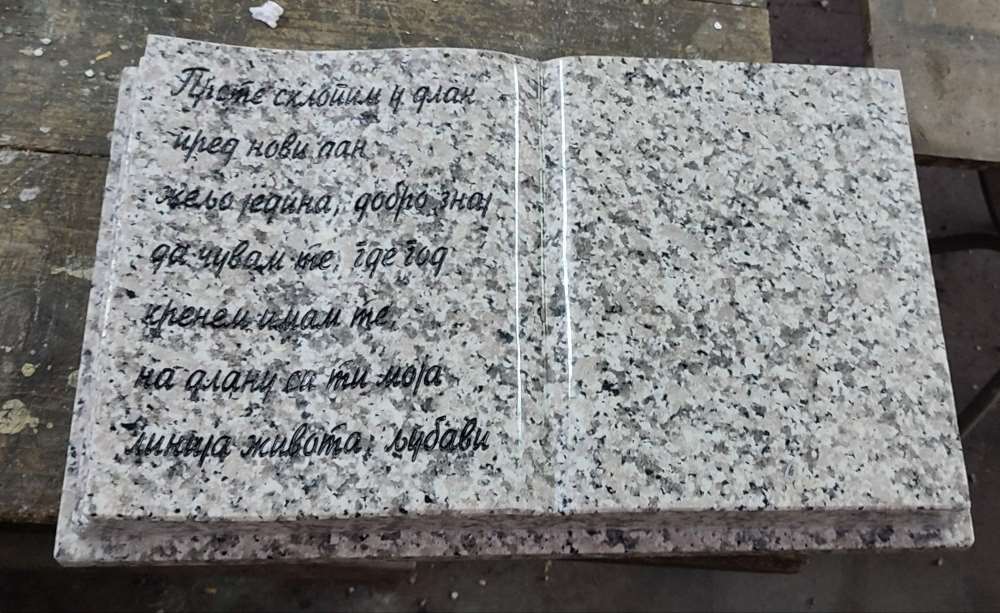 Прсте склопим у длан
пред нови дан
жељо једина, добро знај
да чувам те, где год
кренем имам те,
на длану си ти моја
линија живота, љубави